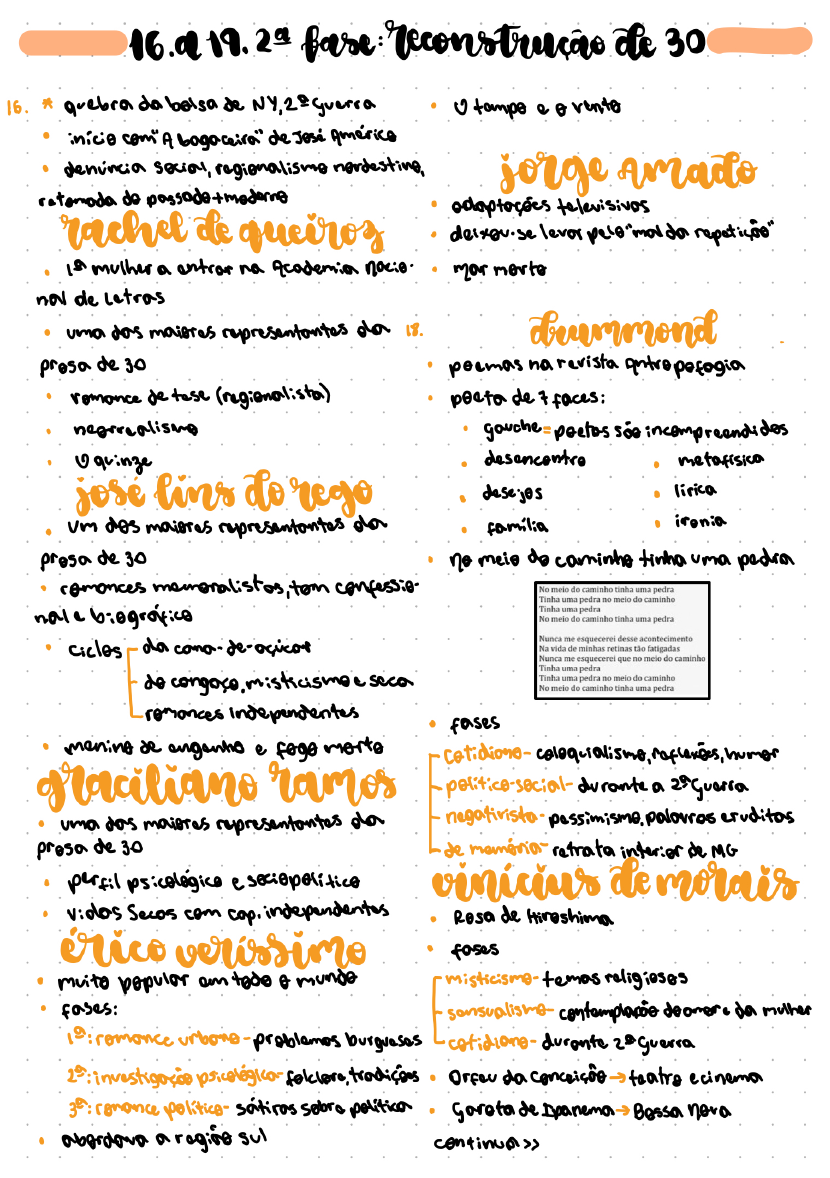 16. a 19. 2ª fase: reconstrução de 30
16. * quebra da bolsa de NY, 2ª Guerra
• início com "A bagaceira" de José Américo
• denúncia social, regionalismo nordestino,
retomada do passado + moderno
rachel de queiroz
• 1ª mulher a entrar na Academia Nacio-
nal de Letras
• uma das maiores representantes da
prosa de 30
• romance de tese (regionalista)
• neorrealismo
• O quinze
josé lins do rego
• um dos maiores representantes da
prosa de 30
• romances memoralistas, tom confessio-
nal e biográfico
• ciclos da cana-de-açúcar
do cangaço, misticismo e seca
romances independentes
• menino de engenho e fogo morto
graciliano ramos
• uma das maiores representantes da
prosa de 30
• perfil psicológico e sociopolítico
• vidas secas com cap. independentes
érico veríssimo
• muito popular em todo o mundo
• fases:
1ª: romance urbano - problemas burgueses
2ª: investigação psicológica - folclore, tradições
3ª: romance político - sátiras sobre política
• abordava a região sul
• O tempo e o vento
jorge amado
• adaptações televisivas
• deixou-se levar pelo "mal da repetição"
• mar morto
18. drummond
• poemas na revista Antropofagia
• poeta de 7 faces:
• gauche = poetas são incompreendidos
• desencontro • metafísica
• desejos • lírica
• família • ironia
• no meio do caminho tinha uma pedra
No meio do caminho tinha uma pedra
Tinha uma pedra no meio do caminho
Tinha uma pedra
No meio do caminho tinha uma pedra
Nunca me esquecerei desse acontecimento
Na vida de minhas retinas tão fatigadas
Nunca me esquecerei que no meio do caminho
Tinha uma pedra
Tinha uma pedra no meio do caminho
No meio do caminho tinha uma pedra
• fases
cotidiano - coloquialismo, reflexões, humor
político-social - durante a 2ª Guerra
negativista - pessimismo, palavras eruditas
de memória - retrata interior de MG
vinícius de morais
• Rosa de Hiroshima
• fases
misticismo - temas religiosos
sensualismo - contemplação do amor e da mulher
cotidiano - durante 2ª Guerra
• Orfeu da Conceição → teatro e cinema
• Garota de Ipanema → Bossa Nova
continua >>